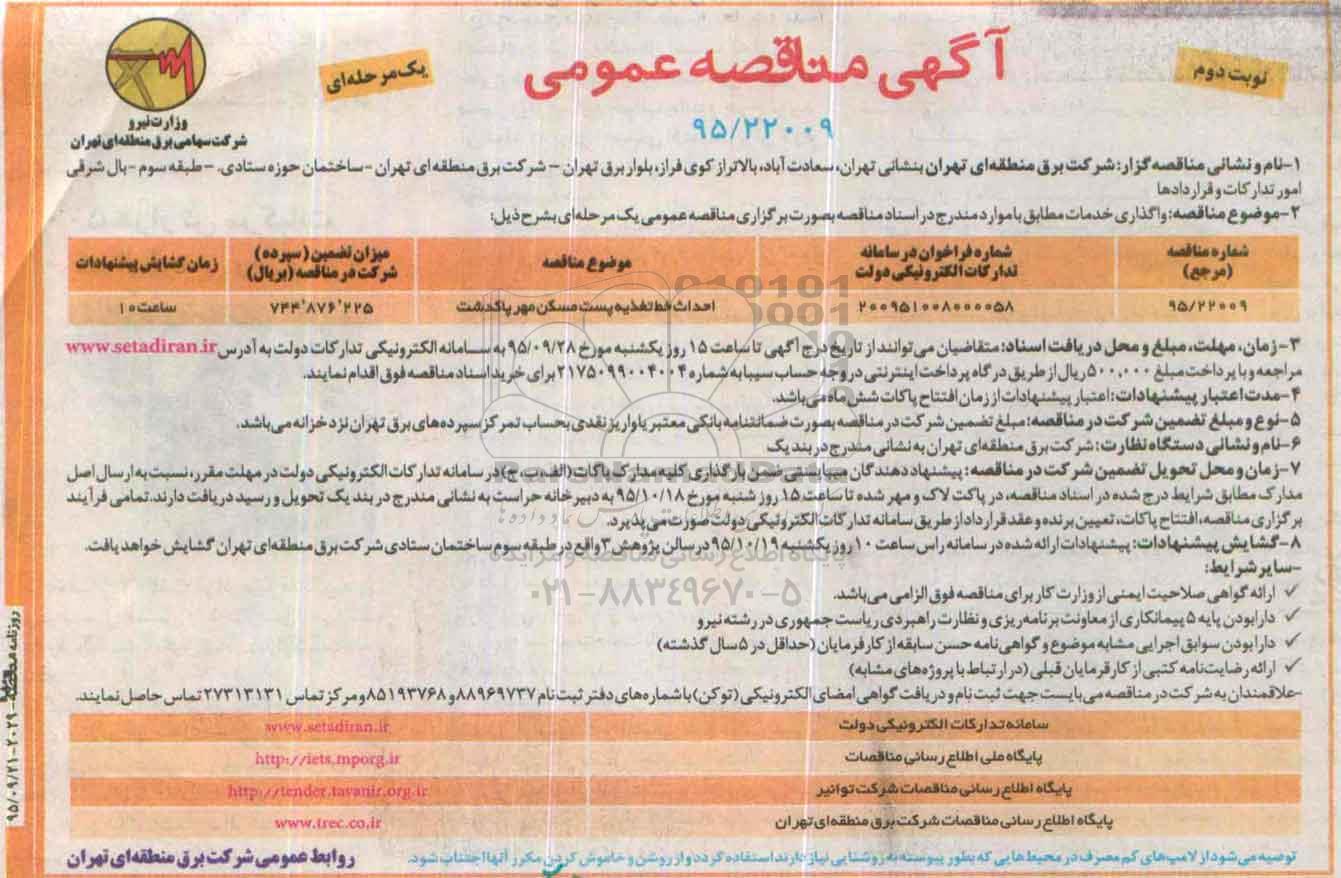 آگهی مناقصه عمومی
نوبت دوم
یک مرحله‌ای
وزارت نیرو
شرکت سهامی برق منطقه‌ای تهران
۹۵/۲۲۰۰۹
۱-نام و نشانی مناقصه گزار: شرکت برق منطقه‌ای تهران بنشانی تهران، سعادت آباد، بالاتر از کوی فراز، بلوار برق تهران – شرکت برق منطقه ای تهران -ساختمان حوزه ستادی. –طبقه سوم -بال شرقی
امور تدارکات و قراردادها
۲-موضوع مناقصه: واگذاری خدمات مطابق با موارد مندرج در اسناد مناقصه بصورت برگزاری مناقصه عمومی یک مرحله‌ای بشرح ذیل:
شماره مناقصه (مرجع)
شماره فراخوان در سامانه تدارکات الکترونیکی دولت
موضوع مناقصه
میزان تضمین (سپرده) شرکت در مناقصه (بریال)
زمان گشایش پیشنهادات
۹۵/۲۲۰۰۹
۲۰۰۹۵۱۰۰۸۰۰۰۰۵۸
احداث خط تغذیه پست مسکن مهر پاکدشت
۷۴۴٬۸۷۶٬۲۲۵
ساعت ۱۰
۳-زمان، مهلت، مبلغ و محل دریافت اسناد: متقاضیان می‌توانند از تاریخ درج آگهی تا ساعت ۱۵ روز یکشنبه مورخ ۹۵/۰۹/۲۸ به سامانه الکترونیکی تدارکات دولت به آدرس www.setadiran.ir
مراجعه و با پرداخت مبلغ ۵۰۰,۰۰۰ ریال از طریق درگاه پرداخت اینترنتی در وجه حساب سیبا به شماره ۲۱۷۵۰۹۹۰۰۴۰۰۴ برای خرید اسناد مناقصه فوق اقدام نمایند.
۴-مدت اعتبار پیشنهادات: اعتبار پیشنهادات از زمان افتتاح پاکات شش ماه می‌باشد.
۵-نوع و مبلغ تضمین شرکت در مناقصه: مبلغ تضمین شرکت در مناقصه بصورت ضمانتنامه بانکی معتبر یا واریز نقدی بحساب تمرکز سپرده‌های برق تهران نزد خزانه می‌باشد.
۶-نام و نشانی دستگاه نظارت: شرکت برق منطقه‌ای تهران به نشانی مندرج در بند یک
۷-زمان و محل تحویل تضمین شرکت در مناقصه: پیشنهاد دهندگان میبایستی ضمن بارگذاری کلیه مدارک پاکات (الف، ب، ج) در سامانه تدارکات الکترونیکی دولت در مهلت مقرر، نسبت به ارسال اصل
مدارک مطابق شرایط درج شده در اسناد مناقصه، در پاکت لاک و مهر شده تا ساعت ۱۵ روز شنبه مورخ ۹۵/۱۰/۱۸ به دبیرخانه حراست به نشانی مندرج در بند یک تحویل و رسید دریافت دارند. تمامی فرآیند
برگزاری مناقصه، افتتاح پاکات، تعیین برنده و عقد قرارداد از طریق سامانه تدارکات الکترونیکی دولت صورت می‌پذیرد.
۸-گشایش پیشنهادات: پیشنهادات ارائه شده در سامانه راس ساعت ۱۰ روز یکشنبه ۹۵/۱۰/۱۹ در سالن پژوهش ۳ واقع در طبقه سوم ساختمان ستادی شرکت برق منطقه‌ای تهران گشایش خواهد یافت.
-سایر شرایط:
✓ ارائه گواهی صلاحیت ایمنی از وزارت کار برای مناقصه فوق الزامی می‌باشد.
✓ دارا بودن پایه ۵ پیمانکاری از معاونت برنامه‌ریزی و نظارت راهبردی ریاست جمهوری در رشته نیرو
✓ دارا بودن سوابق اجرایی مشابه موضوع و گواهی نامه حسن سابقه از کارفرمایان (حداقل در ۵ سال گذشته)
✓ ارائه رضایت‌نامه کتبی از کارفرمایان قبلی (در ارتباط با پروژه‌های مشابه)
-علاقمندان به شرکت در مناقصه می‌بایست جهت ثبت نام و دریافت گواهی امضای الکترونیکی (توکن) با شماره‌های دفتر ثبت نام ۸۸۹۶۹۷۳۷ و ۸۵۱۹۳۷۶۸ و مرکز تماس ۲۷۳۱۳۱۳۱ تماس حاصل نمایند.
سامانه تدارکات الکترونیکی دولت www.setadiran.ir
پایگاه ملی اطلاع رسانی مناقصات http://iets.mporg.ir
پایگاه اطلاع رسانی مناقصات شرکت توانیر http://tender.tavanir.org.ir
پایگاه اطلاع رسانی مناقصات شرکت برق منطقه‌ای تهران www.trec.co.ir
توصیه می‌شود از لامپ‌های کم مصرف در محیط هایی که بطور پیوسته به روشنایی نیاز دارند استفاده گردد و از روشن و خاموش کردن مکرر آنها اجتناب شود.
روابط عمومی شرکت برق منطقه‌ای تهران
روزنامه مناقصه -۲۰۲۹- ۹۵/۰۹/۲۱
پایگاه اطلاع رسانی مناقصه و مزایده
۰۲۱-۸۸۳۴۹۶۷۰-۵